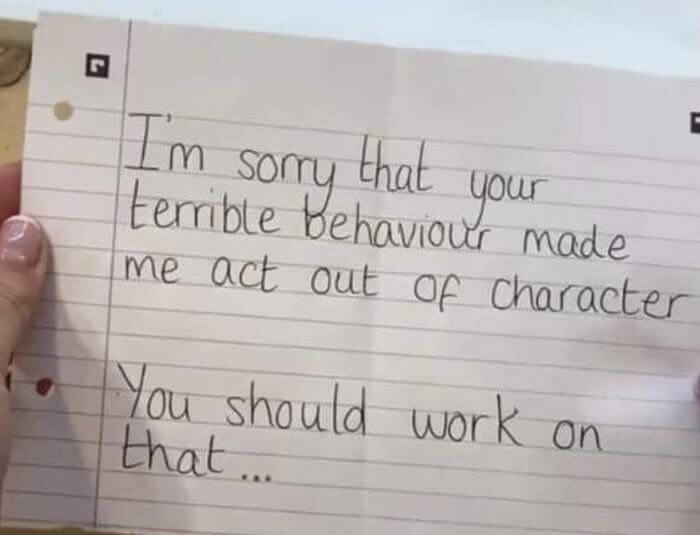 I'm sorry that your
terrible behaviour made
me act out of character
You should work on
that...